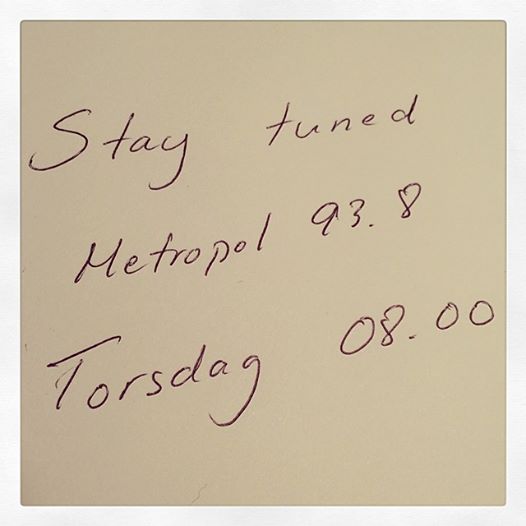 Stay tuned
Metropol 93.8
Torsdag 08.00